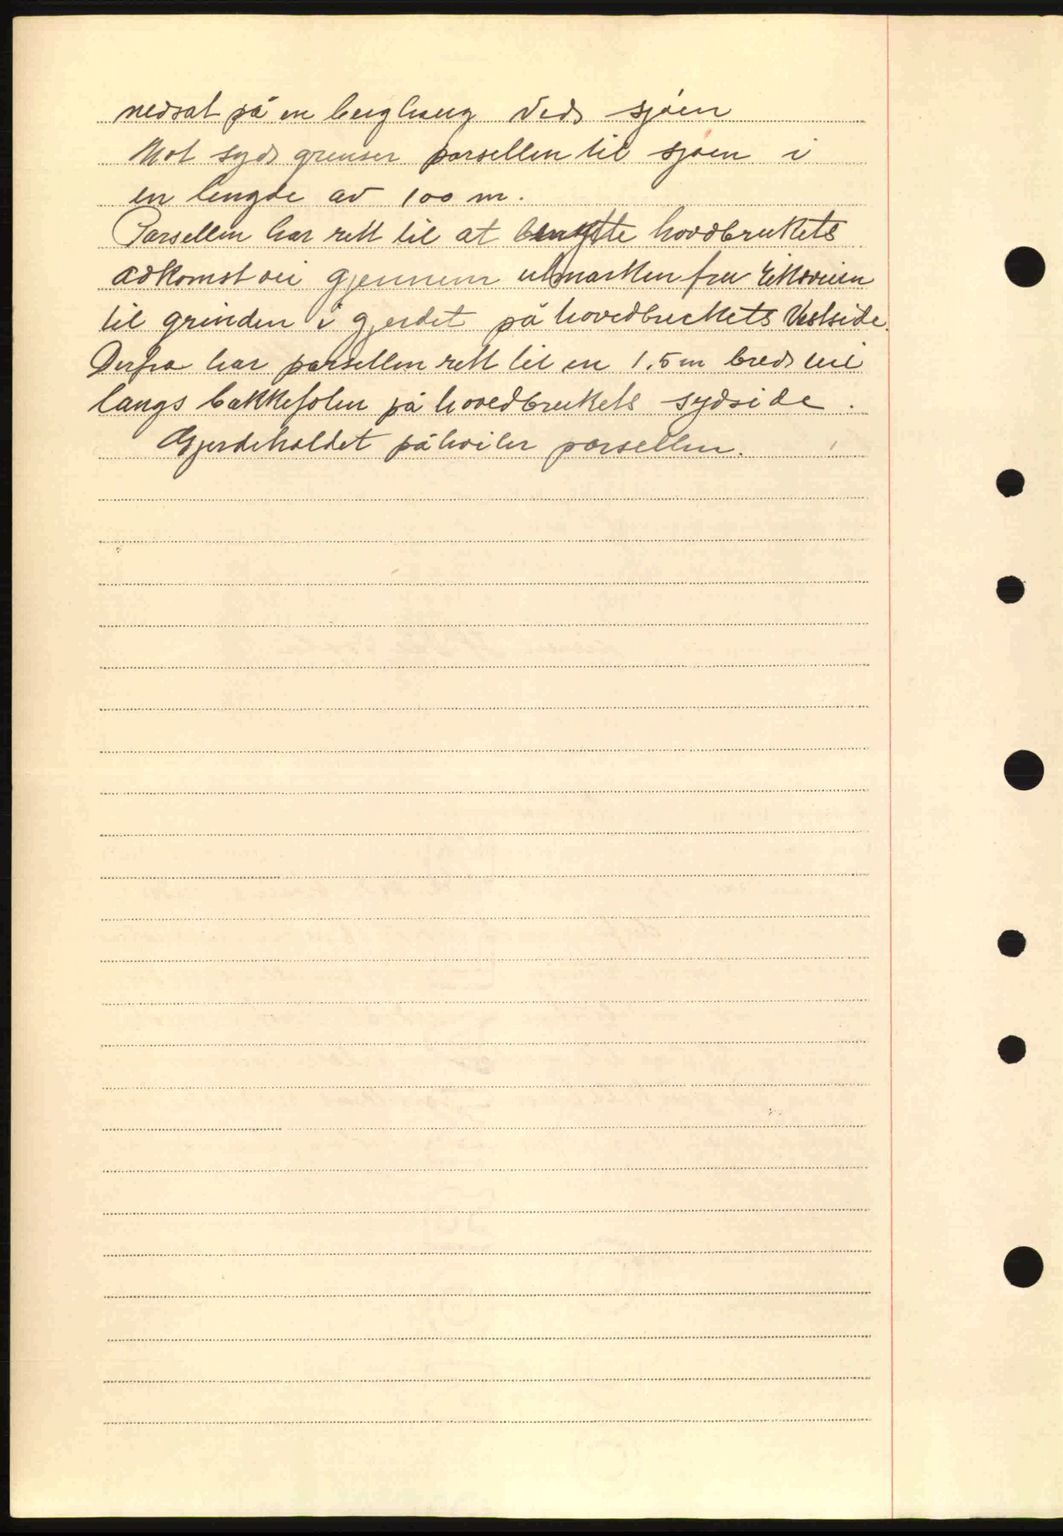 nedsat på en berghaug ved sjøen
Mot syd grenser parsellen til sjøen i
en lengde av 100 m.
Parsellen har rett til at benytte hovedbrukets
adkomst vei gjennem utmarken fra
til grinden i gjerdet på hovedbrukets Vestside.
Derfra har parsellen rett til en 1.5 m bred vei
langs bakkefoten på hovedbrukets sydside.
Gjerdeholdet påhviler parsellen.